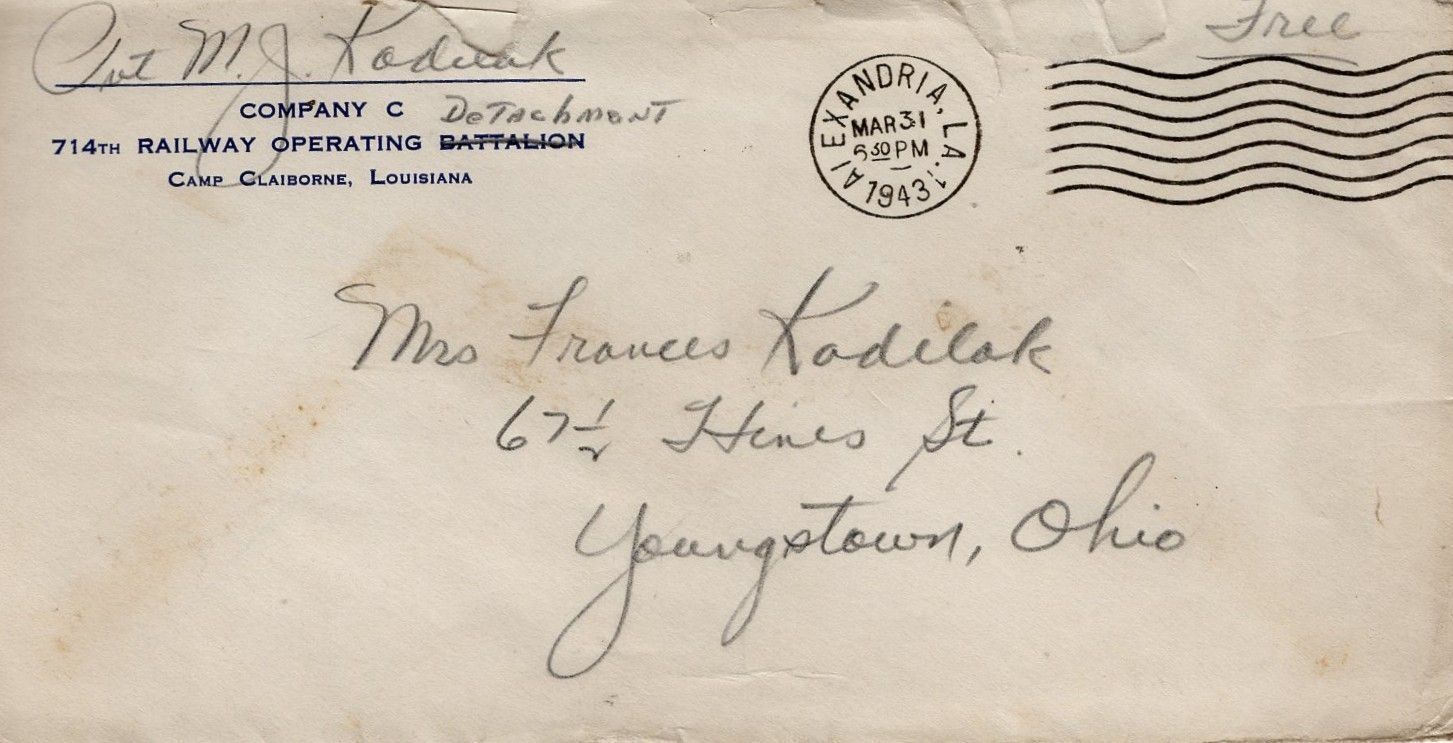 Pvt M. J. Kodelak
COMPANY C Detachment
714TH RAILWAY OPERATING BATTALION
CAMP CLAIBORNE, LOUISIANA
ALEXANDRIA, LA.
MAR 31
30 PM
1943
Free
Mrs Frances Kodelak
67 1/2 Hines St.
Youngstown, Ohio